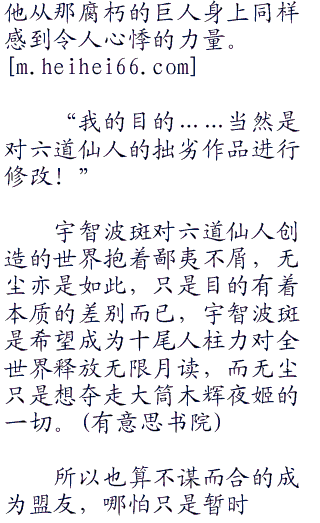 他从那腐朽的巨人身上同样
感到令人心悸的力量。
[m.heihei66.com]
“我的目的……当然是
对六道仙人的拙劣作品进行
修改！”
宇智波斑对六道仙人创
造的世界抱着鄙夷不屑，无
尘亦是如此，只是目的有着
本质的差别而已，宇智波斑
是希望成为十尾人柱力对全
世界释放无限月读，而无尘
只是想夺走大筒木辉夜姬的
一切。(有意思书院)
所以也算不谋而合的成
为盟友，哪怕只是暂时